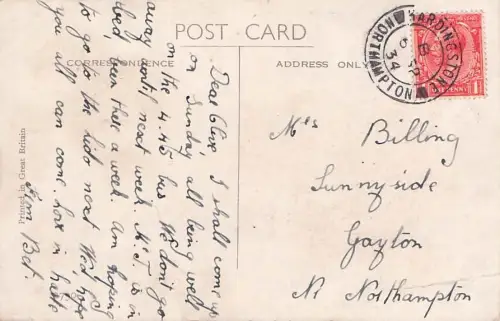 POST CARD
CORRESPONDENCE
ADDRESS ONLY
HARDINGSTONE
NORTHAMPTON
SP
34
Dear Clive, I shall come up
on Sunday all being well
on the 4.45 bus. We don't go
away until next week. A.J. is in
bed, been there a week. Am hoping
to go to the lido next Wed, hope
you all can come. Love in haste
from Bet.
Mrs Billing
Sunnyside
Gayton
Nr Northampton
Printed in Great Britain